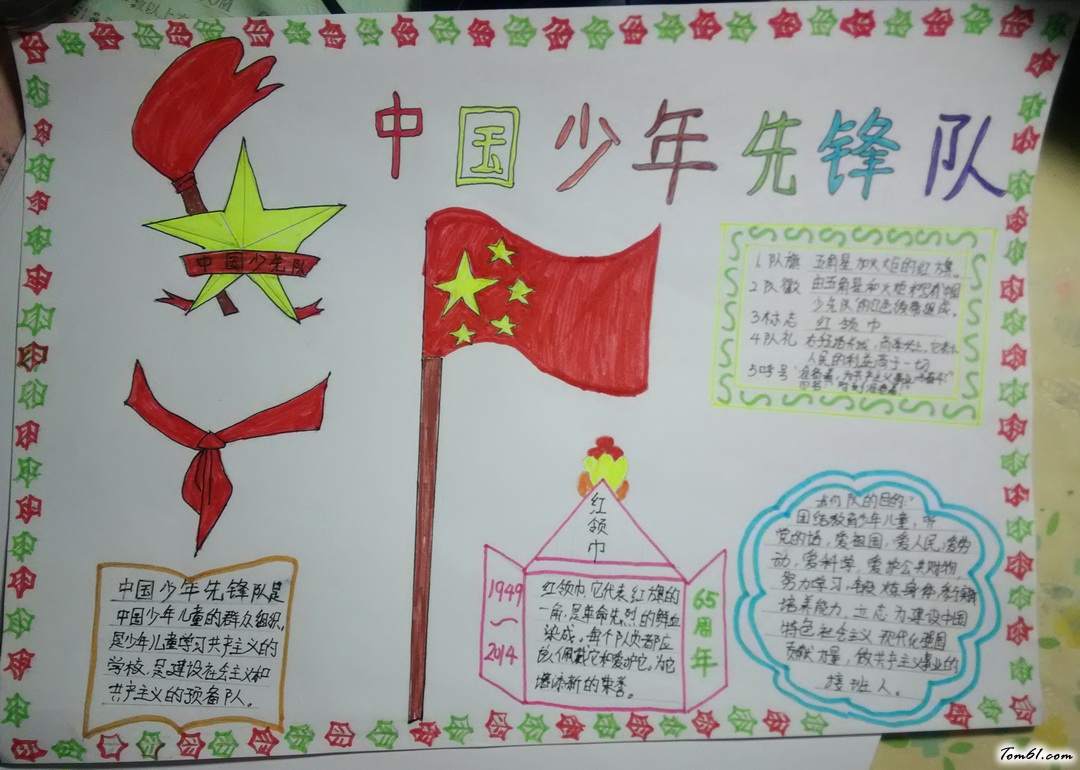 中国少年先锋队
中国少先队
1 队旗 五角星加火炬的红旗。
2 队徽 由五角星和火炬和写有中国
少先队的红色绶带组成。
3 标志 红领巾
4 队礼 右手五指并拢,高举头上,它表示
人民的利益高于一切
5 呼号
红
领
巾
1949
~
2014
红领巾,它代表红旗的
一角,是革命先烈的鲜血
染成。每个队员都应
该佩戴它和爱护它,为它
增添新的荣誉。
65
周
年
我们队的目的:
团结教育少年儿童,听
党的话,爱祖国,爱人民,爱劳
动,爱科学,爱护公共财物,
努力学习,锻炼身体,
培养能力,立志为建设中国
特色社会主义现代化强国
贡献力量,做共产主义事业的
接班人。
中国少年先锋队是
中国少年儿童的群众组织,
是少年儿童学习共产主义的
学校,是建设社会主义和
共产主义的预备队。
Tom61.com